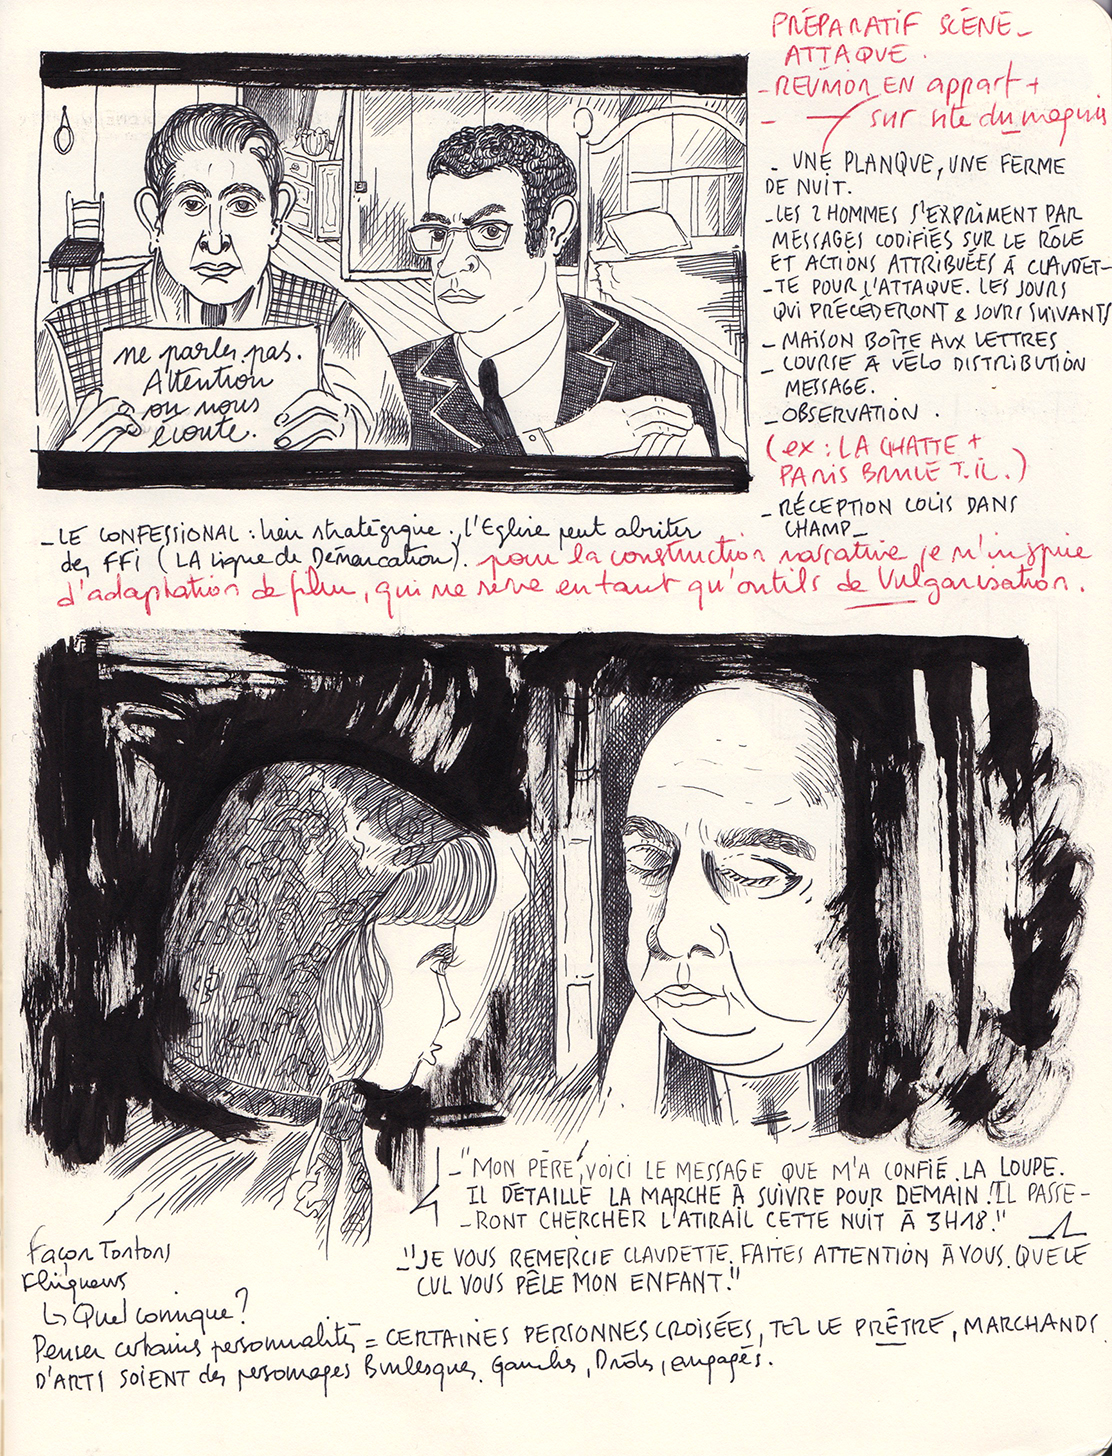 PRÉPARATIF SCÈNE_
ATTAQUE.
- REUNION EN appart +
- sur site du maquis
- UNE PLANQUE, UNE FERME
DE NUIT.
- LES 2 HOMMES S'EXPRIMENT PAR
MESSAGES CODIFIÉS SUR LE RÔLE
ET ACTIONS ATTRIBUÉES À CLAUDET-
-TE POUR L'ATTAQUE. LES JOURS
QUI PRÉCÈDERONT & JOURS SUIVANTS
- MAISON BOÎTE AUX LETTRES.
- COURSE À VÉLO DISTRIBUTION
MESSAGE.
- OBSERVATION.
(ex : LA CHATTE +
PARIS BRULE T.IL.)
- RÉCEPTION COLIS DANS
CHAMP_
ne parlez pas.
Attention
on nous
écoute.
- LE CONFESSIONAL : lieu stratégique. L'Eglise peut abriter
des FFI (LA ligne de Démarcation). pour la construction narrative je m'inspire
d'adaptation de film, qui me serve en tant qu'outils de Vulgarisation.
- "MON PÈRE, VOICI LE MESSAGE QUE M'A CONFIÉ LA LOUPE.
IL DÉTAILLE LA MARCHE À SUIVRE POUR DEMAIN. IL PASSE-
-RONT CHERCHER L'ATIRAIL CETTE NUIT À 3H18."
- "JE VOUS REMERCIE CLAUDETTE. FAITES ATTENTION À VOUS. QUE LE
CUL VOUS PÈLE MON ENFANT."
Façon Tontons
Flingueurs
↳ Quel comique ?
Penser certains personnalités = CERTAINES PERSONNES CROISÉES, TEL LE PRÊTRE, MARCHANDS
D'ARTS SOIENT des personages Burlesques. Gauches, Drôles, engagés.